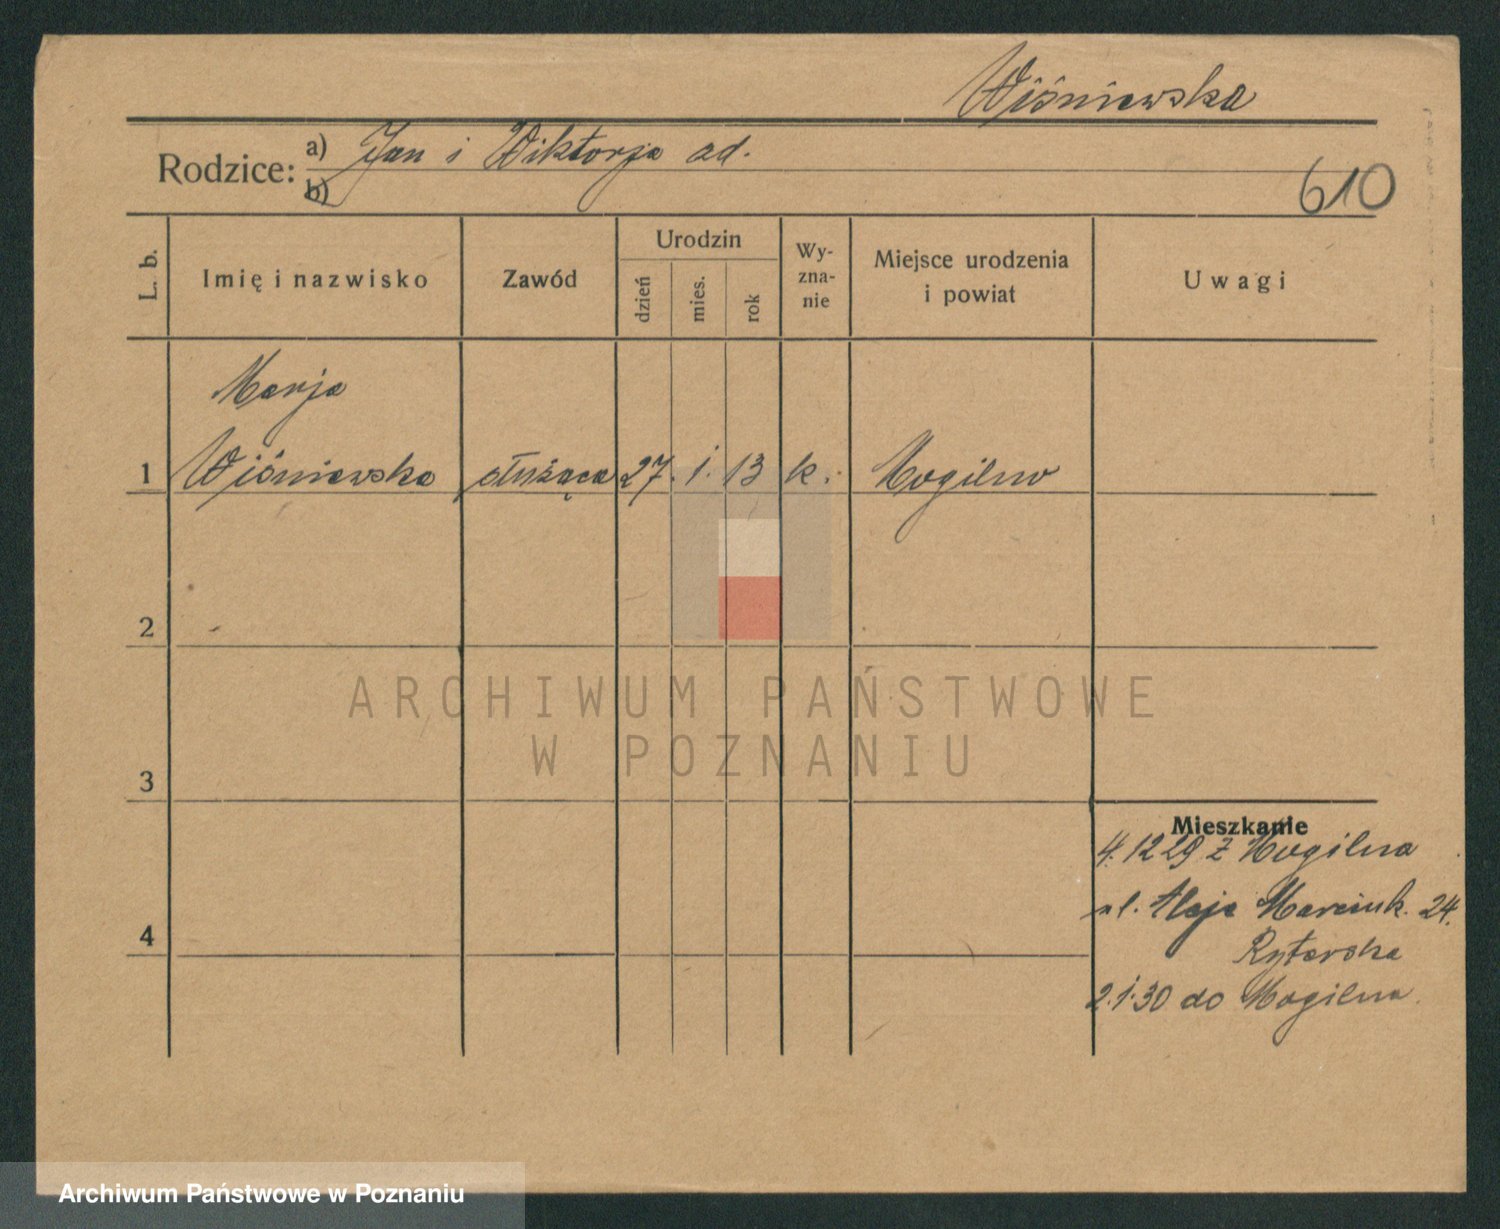 Wiśniewska
Rodzice: a) Jan i Wiktorja ad.
b)
610
L. b.
Imię i nazwisko
Zawód
Urodzin
dzień
mies.
rok
Wy-
zna-
nie
Miejsce urodzenia
i powiat
Uwagi
Marja
1 Wiśniewska służąca 27. 1. 13 k. Mogilno
2
3
4
Mieszkanie
4. 12 29 z Mogilna
ul. Aleje Marcink. 24.
Rytarska
2.1.30 do Mogilna.
ARCHIWUM PAŃSTWOWE
W POZNANIU
Archiwum Państwowe w Poznaniu